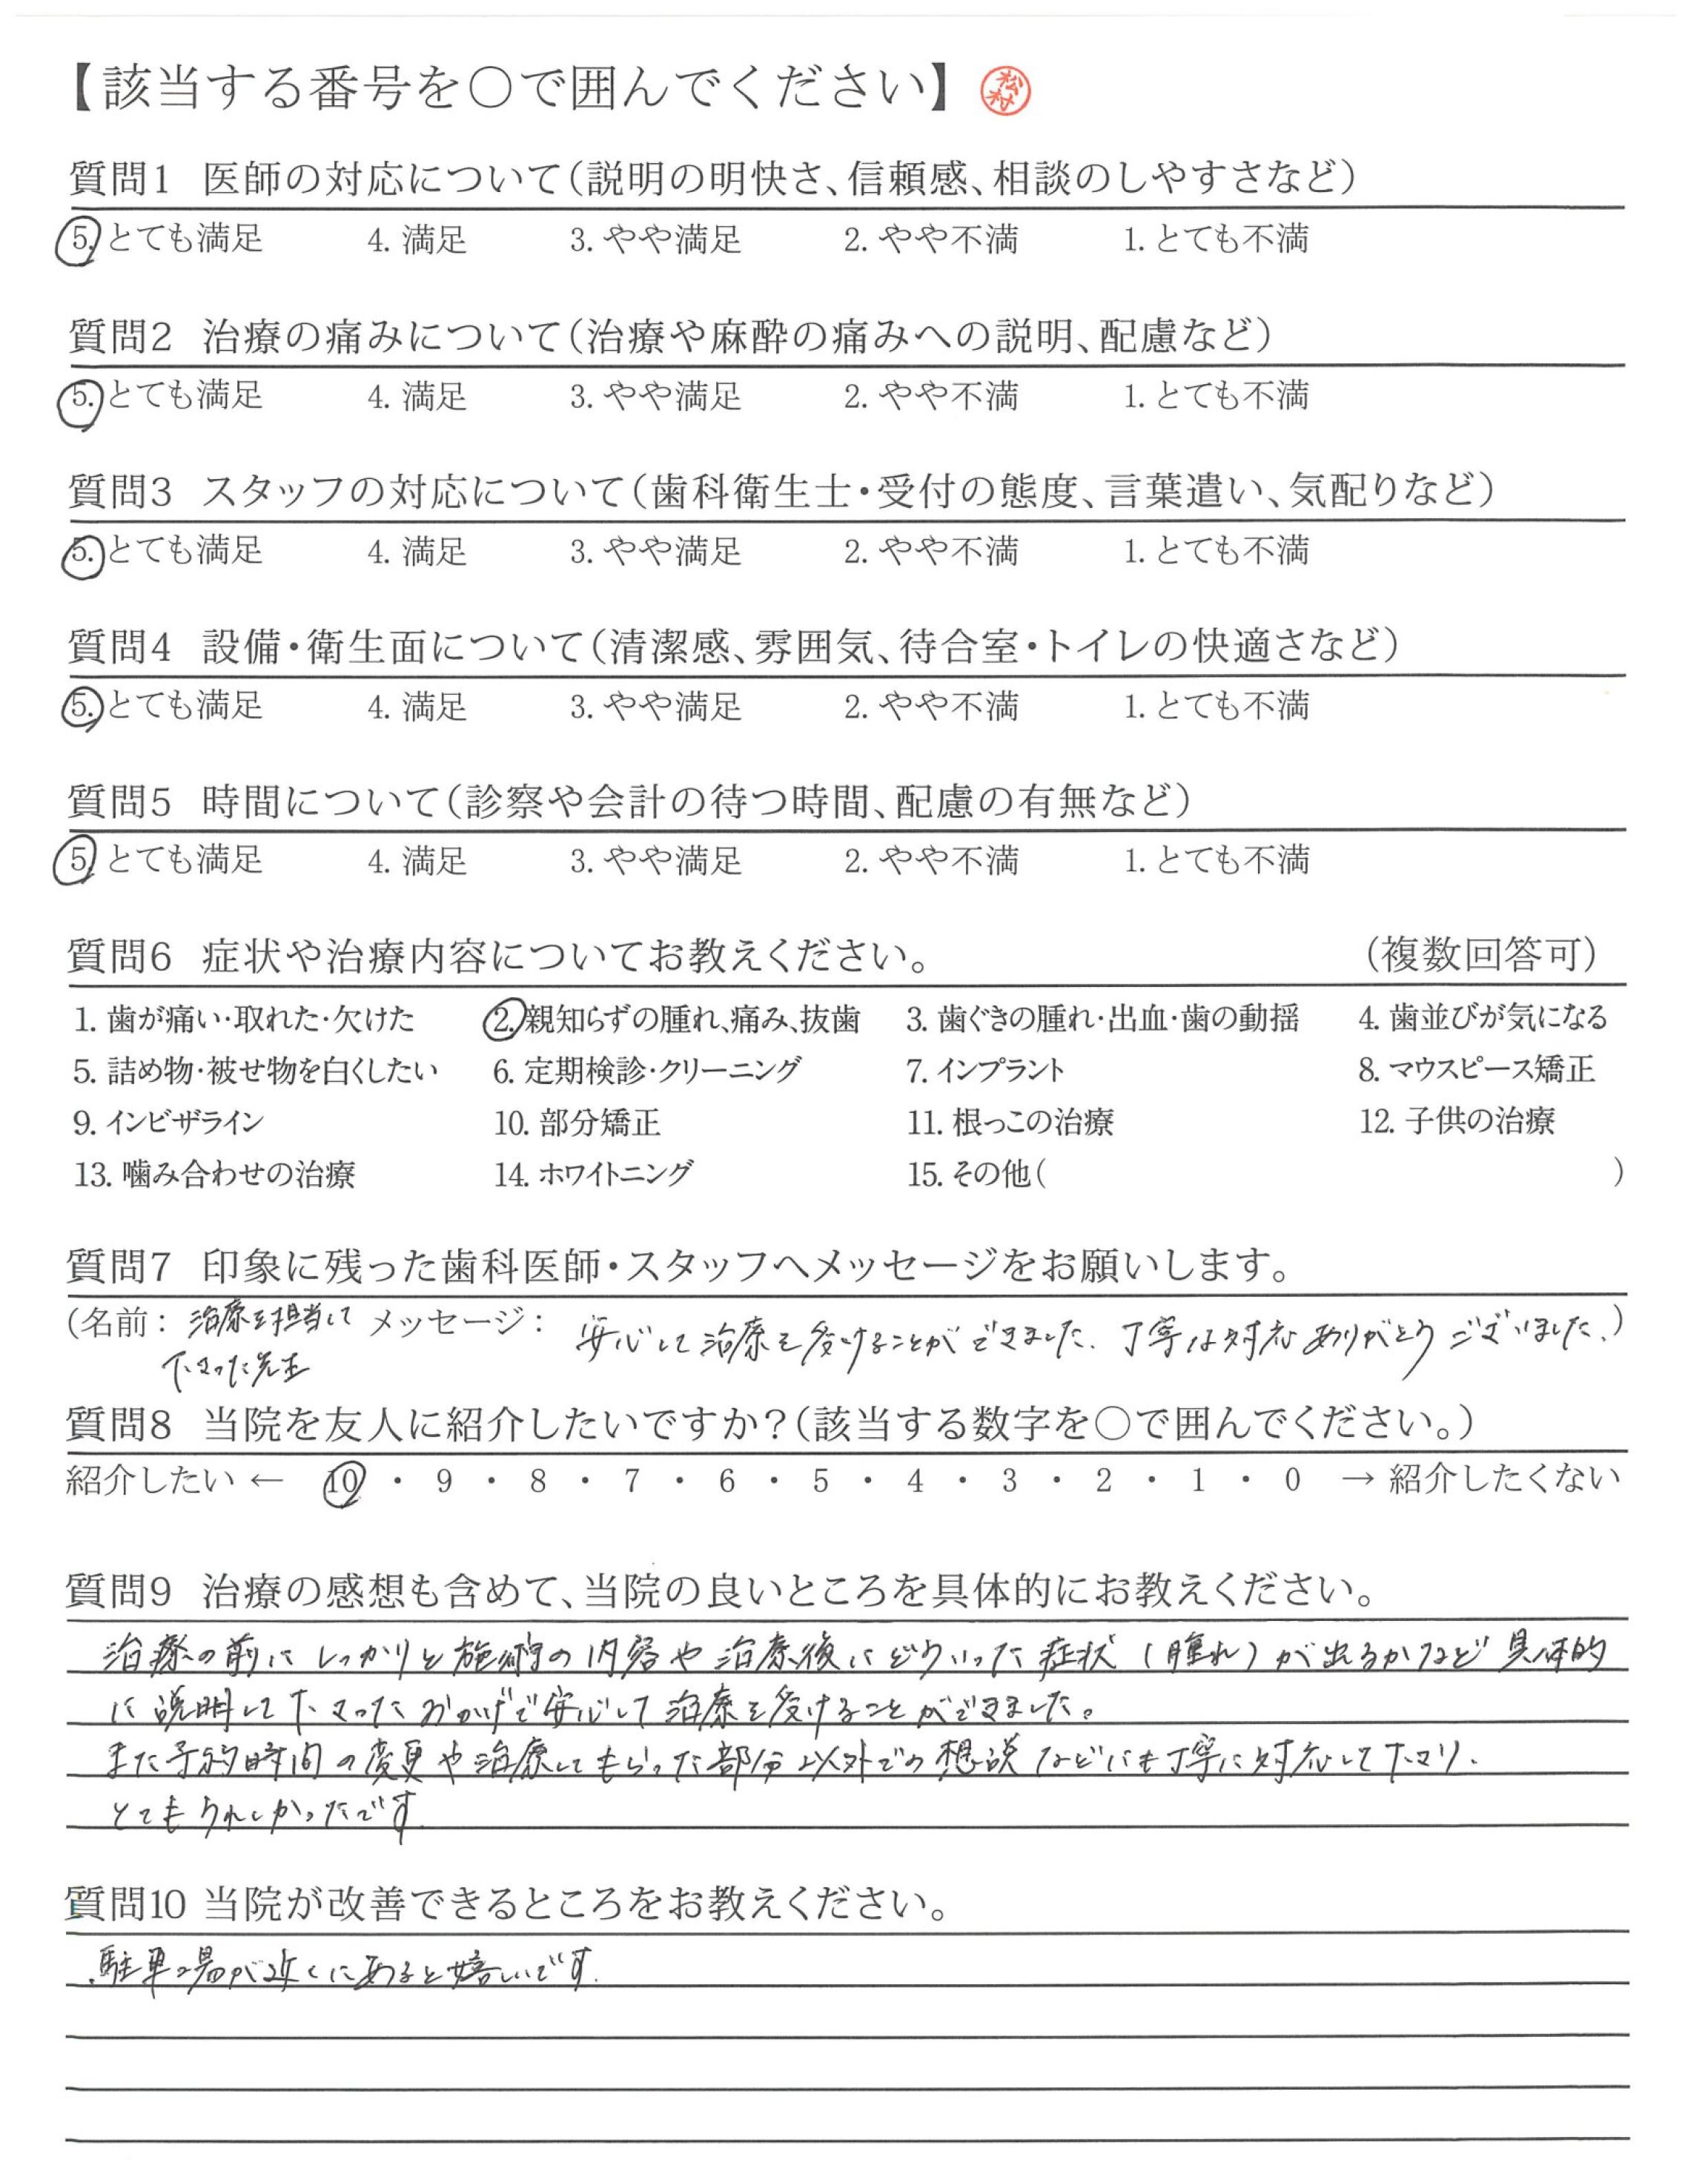 【該当する番号を○で囲んでください】 松村
質問1 医師の対応について(説明の明快さ、信頼感、相談のしやすさなど)
5. とても満足 4. 満足 3. やや満足 2. やや不満 1. とても不満
質問2 治療の痛みについて(治療や麻酔の痛みへの説明、配慮など)
5. とても満足 4. 満足 3. やや満足 2. やや不満 1. とても不満
質問3 スタッフの対応について(歯科衛生士・受付の態度、言葉遣い、気配りなど)
5. とても満足 4. 満足 3. やや満足 2. やや不満 1. とても不満
質問4 設備・衛生面について(清潔感、雰囲気、待合室・トイレの快適さなど)
5. とても満足 4. 満足 3. やや満足 2. やや不満 1. とても不満
質問5 時間について(診察や会計の待つ時間、配慮の有無など)
5. とても満足 4. 満足 3. やや満足 2. やや不満 1. とても不満
質問6 症状や治療内容についてお教えください。 (複数回答可)
1. 歯が痛い・取れた・欠けた 2. 親知らずの腫れ、痛み、抜歯 3. 歯ぐきの腫れ・出血・歯の動揺 4. 歯並びが気になる
5. 詰め物・被せ物を白くしたい 6. 定期検診・クリーニング 7. インプラント 8. マウスピース矯正
9. インビザライン 10. 部分矯正 11. 根っこの治療 12. 子供の治療
13. 噛み合わせの治療 14. ホワイトニング 15. その他( )
質問7 印象に残った歯科医師・スタッフへメッセージをお願いします。
(名前: 治療を担当して メッセージ: 安心して治療を受けることができました。丁寧な対応ありがとうございました。)
下さった先生
質問8 当院を友人に紹介したいですか?(該当する数字を○で囲んでください。)
紹介したい ← 10 ・ 9 ・ 8 ・ 7 ・ 6 ・ 5 ・ 4 ・ 3 ・ 2 ・ 1 ・ 0 → 紹介したくない
質問9 治療の感想も含めて、当院の良いところを具体的にお教えください。
治療の前にしっかりと施術の内容や治療後にどういった症状(腫れ)が出るかなど具体的
に説明して下さったおかげで安心して治療を受けることができました。
また予約時間の変更や治療してもらった部分以外での相談などにも丁寧に対応して下さり、
とてもうれしかったです。
質問10 当院が改善できるところをお教えください。
駐車場が近くにあると嬉しいです。